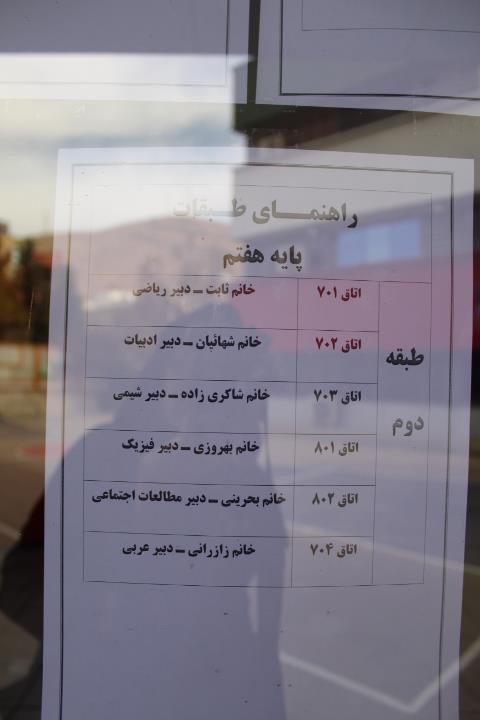 راهنمــــای طـبقات
پایه هفتم
طبقه دوم
اتاق ۷۰۱ خانم ثابت – دبیر ریاضی
اتاق ۷۰۲ خانم شهائیان – دبیر ادبیات
اتاق ۷۰۳ خانم شاکری زاده – دبیر شیمی
اتاق ۸۰۱ خانم بهروزی – دبیر فیزیک
اتاق ۸۰۲ خانم بحرینی – دبیر مطالعات اجتماعی
اتاق ۷۰۴ خانم زازرانی – دبیر عربی